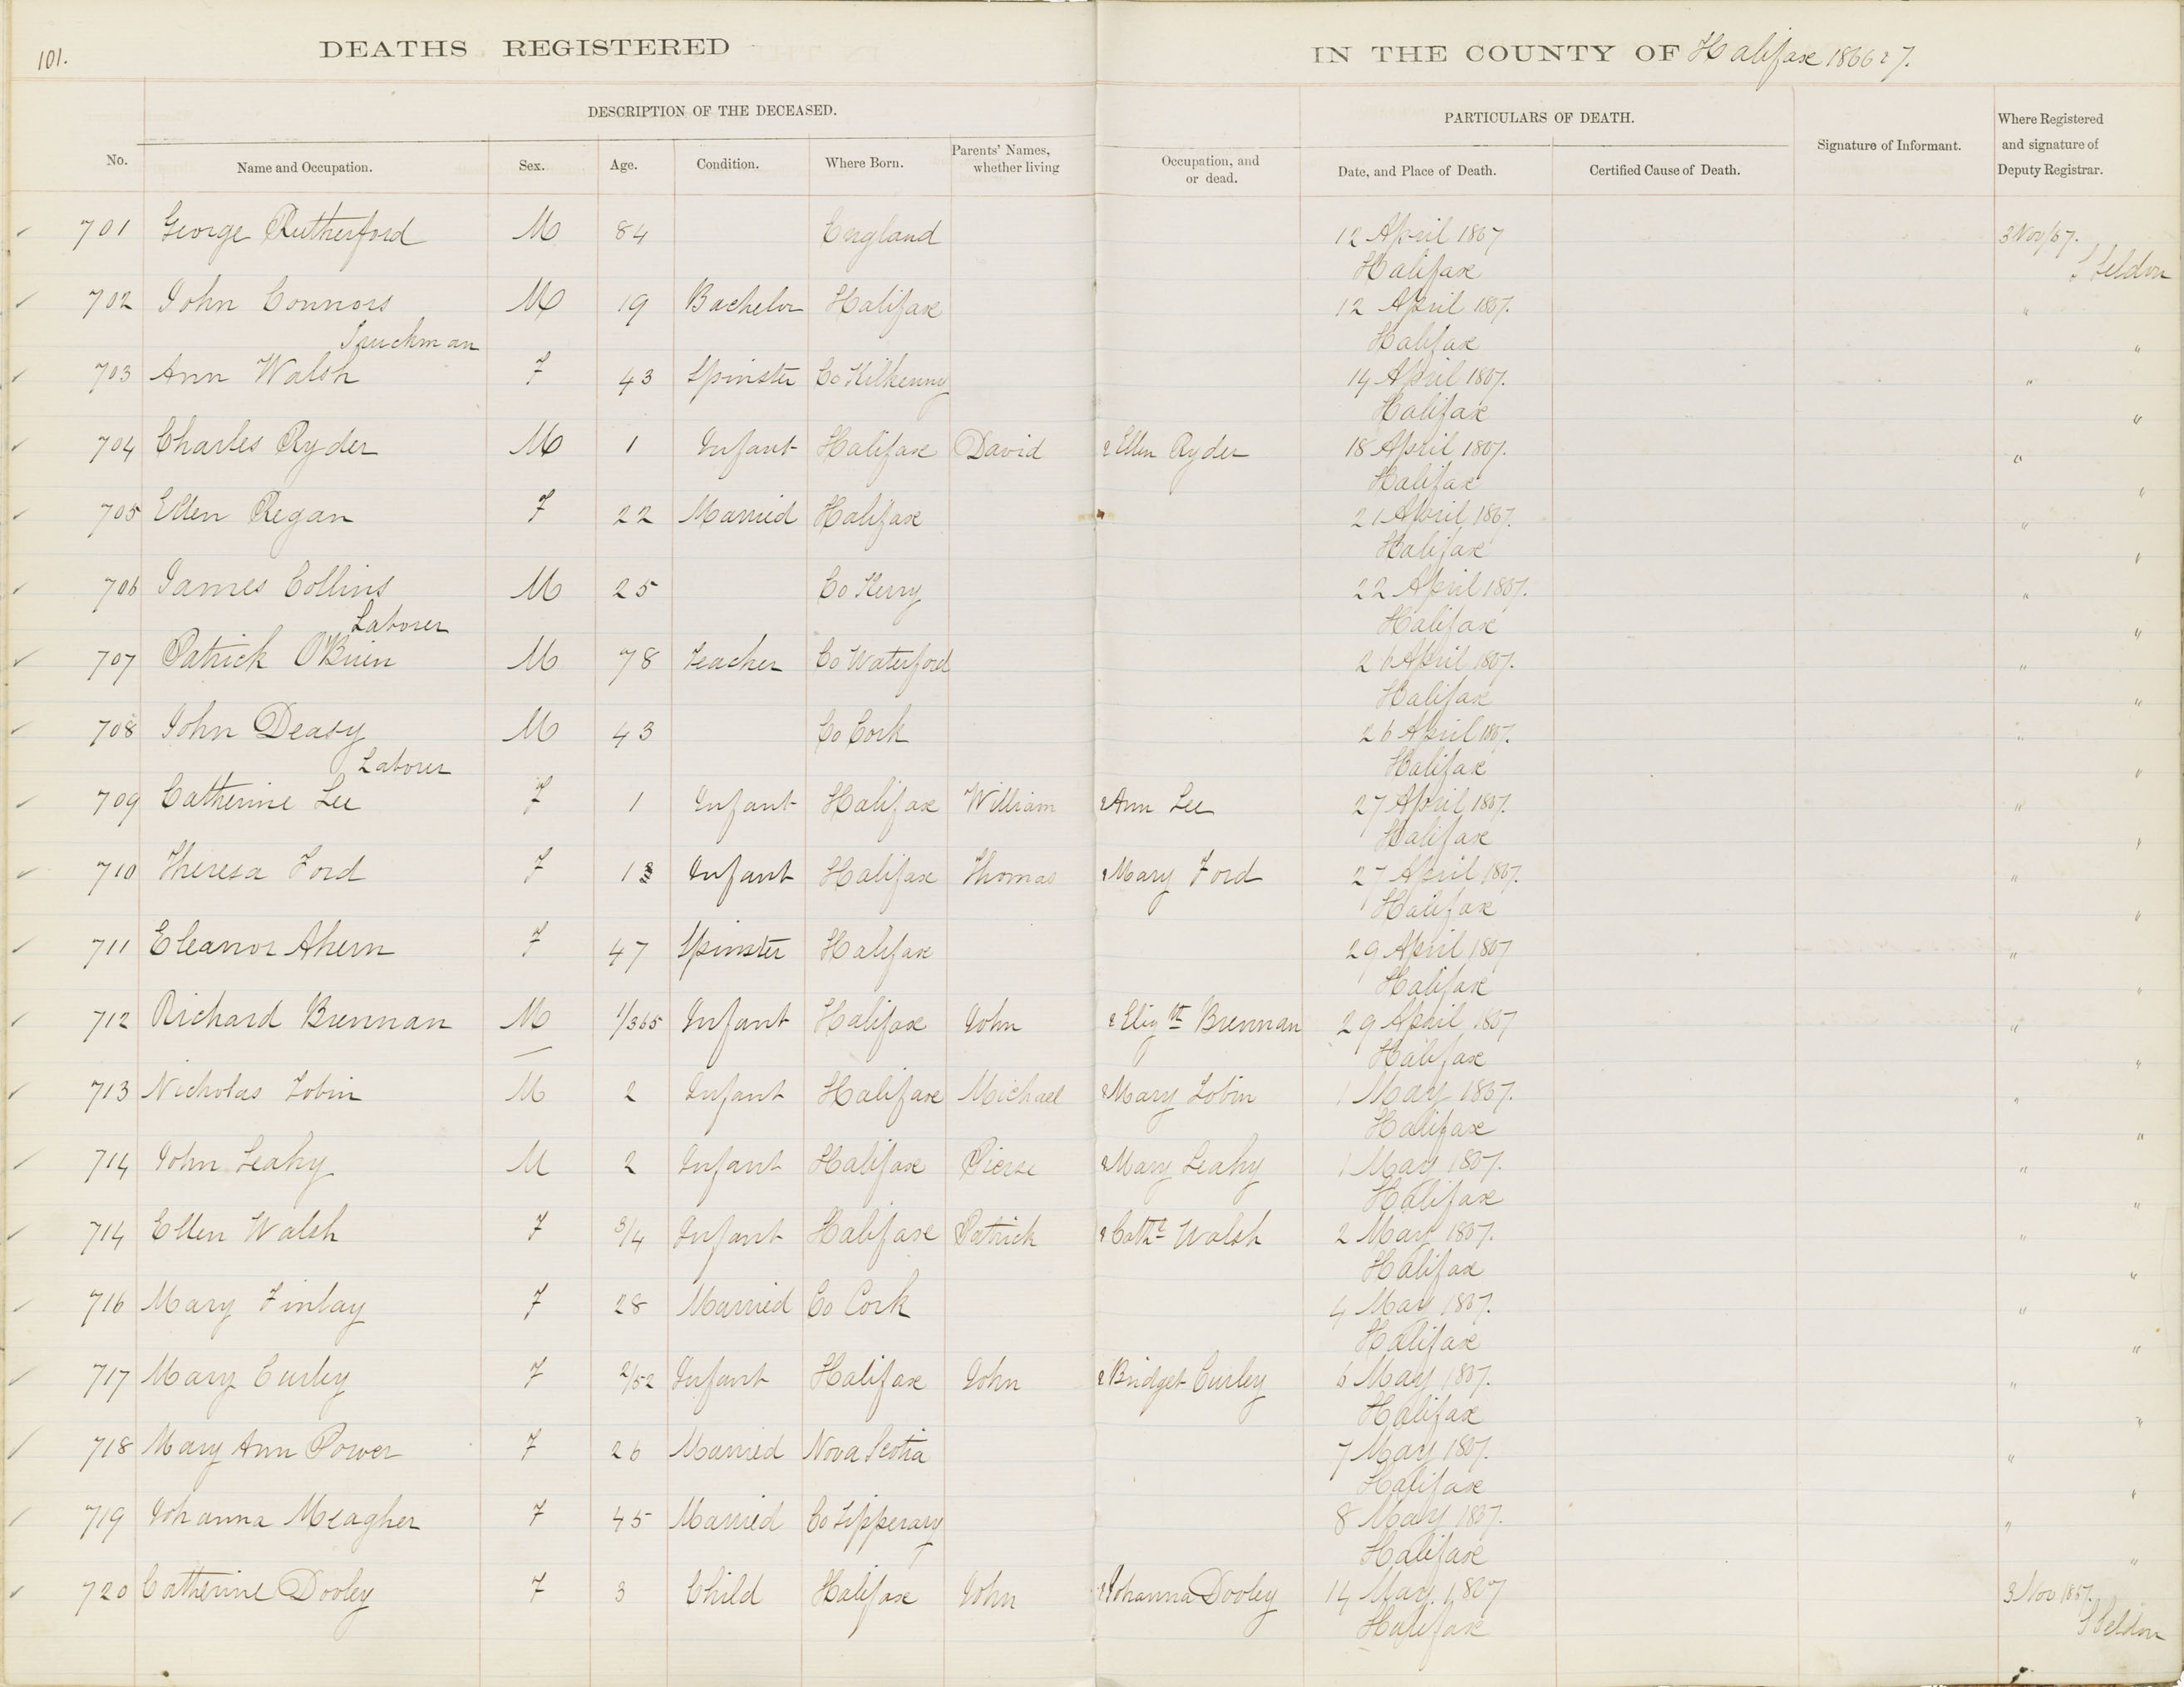 101.
DEATHS REGISTERED IN THE COUNTY OF Halifax 1866 & 7.
DESCRIPTION OF THE DECEASED. PARTICULARS OF DEATH.
No. Name and Occupation. Sex. Age. Condition. Where Born. Parents' Names, whether living Occupation, and or dead. Date, and Place of Death. Certified Cause of Death. Signature of Informant. Where Registered and signature of Deputy Registrar.
701 George Rutherford M 84 England 12 April 1867 3 Nov/67.
Halifax Seldon
702 John Connors M 19 Bachelor Halifax 12 April 1867. "
Truckman Halifax "
703 Ann Walsh F 43 Spinster Co Kilkenny 14 April 1867. "
Halifax "
704 Charles Ryder M 1 Infant Halifax David & Ellen Ryder 18 April 1867. "
Halifax "
705 Ellen Regan F 22 Married Halifax 21 April 1867. "
Halifax "
706 James Collins M 25 Co Kerry 22 April 1867. "
Laborer Halifax "
707 Patrick O'Brien M 78 Teacher Co Waterford 26 April 1867. "
Halifax "
708 John Deasy M 43 Co Cork 26 April 1867. "
Laborer Halifax "
709 Catherine Lee F 1 Infant Halifax William & Ann Lee 27 April 1867. "
Halifax "
710 Theresa Ford F 1 Infant Halifax Thomas & Mary Ford 27 April 1867. "
Halifax "
711 Eleanor Ahern F 47 Spinster Halifax 29 April 1867 "
Halifax "
712 Richard Brennan M 1/365 Infant Halifax John & Elizth Brennan 29 April 1867 "
Halifax "
713 Nicholas Tobin M 2 Infant Halifax Michael & Mary Tobin 1 May 1867. "
Halifax "
714 John Leahy M 2 Infant Halifax Pierse & Mary Leahy 1 May 1867. "
Halifax "
714 Ellen Walsh F 3/4 Infant Halifax Patrick & Cathe Walsh 2 May 1867. "
Halifax "
716 Mary Finlay F 28 Married Co Cork 4 May 1867. "
Halifax "
717 Mary Curley F 2/52 Infant Halifax John & Bridget Curley 6 May 1867. "
Halifax "
718 Mary Ann Power F 26 Married Nova Scotia 7 May 1867. "
Halifax "
719 Johanna Meagher F 45 Married Co Tipperary 8 May 1867. "
Halifax "
720 Catherine Dooley F 3 Child Halifax John & Johanna Dooley 14 May. 1867 3 Nov 1867.
Halifax Seldon